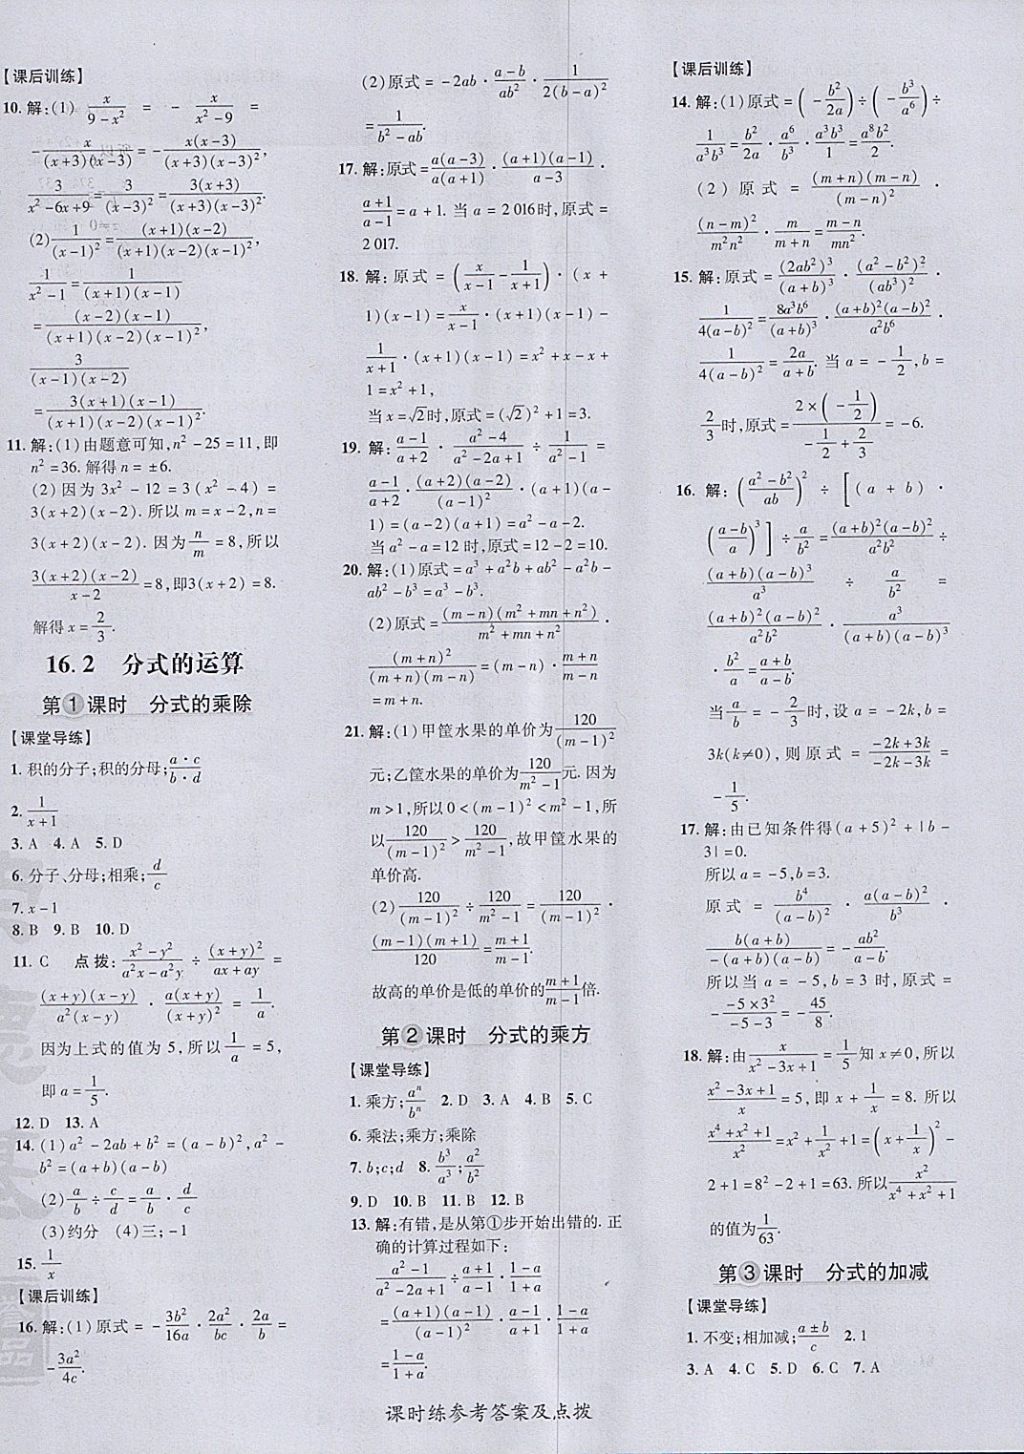 【课后训练】
10. 解:(1) x/(9-x²) = - x/(x²-9) =
- x/((x+3)(x-3)) = - x(x-3)/((x+3)(x-3)²),
3/(x²-6x+9) = 3/(x-3)² = 3(x+3)/((x+3)(x-3)²).
(2) 1/(x-1)² = (x+1)(x-2)/((x+1)(x-2)(x-1)²),
1/(x²-1) = 1/((x+1)(x-1))
= (x-2)(x-1)/((x+1)(x-2)(x-1)²),
3/((x-1)(x-2))
= 3(x+1)(x-1)/((x+1)(x-2)(x-1)²).
11. 解:(1)由题意可知,n²-25=11,即
n²=36. 解得 n=±6.
(2)因为 3x²-12=3(x²-4)=
3(x+2)(x-2). 所以 m=x-2,n=
3(x+2)(x-2). 因为 n/m =8,所以
3(x+2)(x-2)/(x-2) =8,即3(x+2)=8.
解得 x= 2/3.
16.2 分式的运算
第①课时 分式的乘除
【课堂导练】
1. 积的分子;积的分母; (a·c)/(b·d)
2. 1/(x+1)
3. A 4. A 5. D
6. 分子、分母;相乘; d/c
7. x-1
8. B 9. B 10. D
11. C 点拨: (x²-y²)/(a²x-a²y) ÷ (x+y)²/(ax+ay) =
(x+y)(x-y)/(a²(x-y)) · a(x+y)/(x+y)² = 1/a.
因为上式的值为 5,所以 1/a =5,
即 a= 1/5.
12. D 13. A
14. (1)a²-2ab+b²=(a-b)²,a²-
b²=(a+b)(a-b)
(2) a/b ÷ c/d = a/b · d/c
(3)约分 (4)三;-1
15. 1/x
【课后训练】
16. 解:(1)原式= - 3b²/16a · 2a²/bc · 2a/b =
- 3a²/4c.
(2)原式=-2ab · (a-b)/ab² · 1/(2(b-a)²)
= 1/(b²-ab).
17. 解:原式= a(a-3)/(a(a+1)) · (a+1)(a-1)/(a-3) ·
(a+1)/(a-1) =a+1. 当 a=2 016时,原式=
2 017.
18. 解:原式= (x/(x-1) - 1/(x+1)) ·(x+
1)(x-1)= x/(x-1) ·(x+1)(x-1)-
1/(x+1) ·(x+1)(x-1)=x²+x-x+
1=x²+1,
当 x=√2时,原式=(√2)²+1=3.
19. 解: (a-1)/(a+2) · (a²-4)/(a²-2a+1) ÷ 1/(a²-1) =
(a-1)/(a+2) · (a+2)(a-2)/(a-1)² ·(a+1)(a-
1)=(a-2)(a+1)=a²-a-2.
当 a²-a=12 时,原式=12-2=10.
20. 解:(1)原式=a³+a²b+ab²-a²b-
ab²-b³=a³-b³.
(2)原式= (m-n)(m²+mn+n²)/(m²+mn+n²) ·
(m+n)²/((m+n)(m-n)) · (m-n)/(m+n) = m-n.
21. 解:(1)甲筐水果的单价为 120/(m-1)²
元;乙筐水果的单价为 120/(m²-1) 元. 因为
m>1,所以 0<(m-1)²<m²-1,所
以 120/(m-1)² > 120/(m²-1),故甲筐水果的
单价高.
(2) 120/(m-1)² ÷ 120/(m²-1) = 120/(m-1)² ·
(m-1)(m+1)/120 = (m+1)/(m-1).
故高的单价是低的单价的 (m+1)/(m-1) 倍.
第②课时 分式的乘方
【课堂导练】
1. 乘方; aⁿ/bⁿ 2. D 3. A 4. B 5. C
6. 乘法;乘方;乘除
7. b;c;d 8. b³/a³; a²/b²
9. D 10. B 11. B 12. B
13. 解:有错,是从第①步开始出错的. 正
确的计算过程如下:
(a²-1)/(a²-2a+1) ÷ (a+1)/(a-1) · (1-a)/(1+a)
= (a+1)(a-1)/(a-1)² · (a-1)/(a+1) · (1-a)/(1+a)
= (1-a)/(1+a).
【课后训练】
14. 解:(1)原式= (-b²/2a) ÷ (-b³/a⁶) ÷
1/(a³b³) = b²/2a · a⁶/b³ · a³b³/1 = a⁸b²/2.
(2)原式= (m+n)(m-n)/(m-n)² ·
(n-m)²/(m²n²) · m/(m+n) = (m-n)/(mn²).
15. 解:原式= (2ab²)³/(a+b)³ · (a²-b²)²/(ab³)² ·
1/(4(a-b)²) = 8a³b⁶/(a+b)³ · (a+b)²(a-b)²/(a²b⁶) ·
1/(4(a-b)²) = 2a/(a+b). 当 a=- 1/2,b=
2/3 时,原式= (2×(-1/2))/(-1/2+2/3) =-6.
16. 解: ((a²-b²)/ab)² ÷ [(a+b)·
((a-b)/a)³] ÷ a/b² = (a+b)²(a-b)²/(a²b²) ÷
(a+b)(a-b)³/a³ ÷ a/b² =
(a+b)²(a-b)²/(a²b²) · a³/((a+b)(a-b)³)
· b²/a = (a+b)/(a-b).
当 a/b =- 2/3 时,设 a=-2k,b=
3k(k≠0),则原式= (-2k+3k)/(-2k-3k) =
- 1/5.
17. 解:由已知条件得(a+5)²+|b-
3|=0.
所以 a=-5,b=3.
原式= b⁴/(a-b)² · a(a-b)²/b³ ·
b(a+b)/(-(a+b)(a-b)) =- ab²/(a-b).
所以当 a=-5,b=3 时,原式=
- (-5×3²)/(-5-3) =- 45/8.
18. 解:由 x/(x²-3x+1) = 1/5 知 x≠0,所以
(x²-3x+1)/x =5,即 x+ 1/x =8. 所以
(x⁴+x²+1)/x² =x²+ 1/x² +1= (x+1/x)² -
2+1=8²-2+1=63. 所以 x²/(x⁴+x²+1)
的值为 1/63.
第③课时 分式的加减
【课堂导练】
1. 不变;相加减; (a±b)/c 2. 1
3. A 4. C 5. D 6. C 7. A
课时练参考答案及点拨